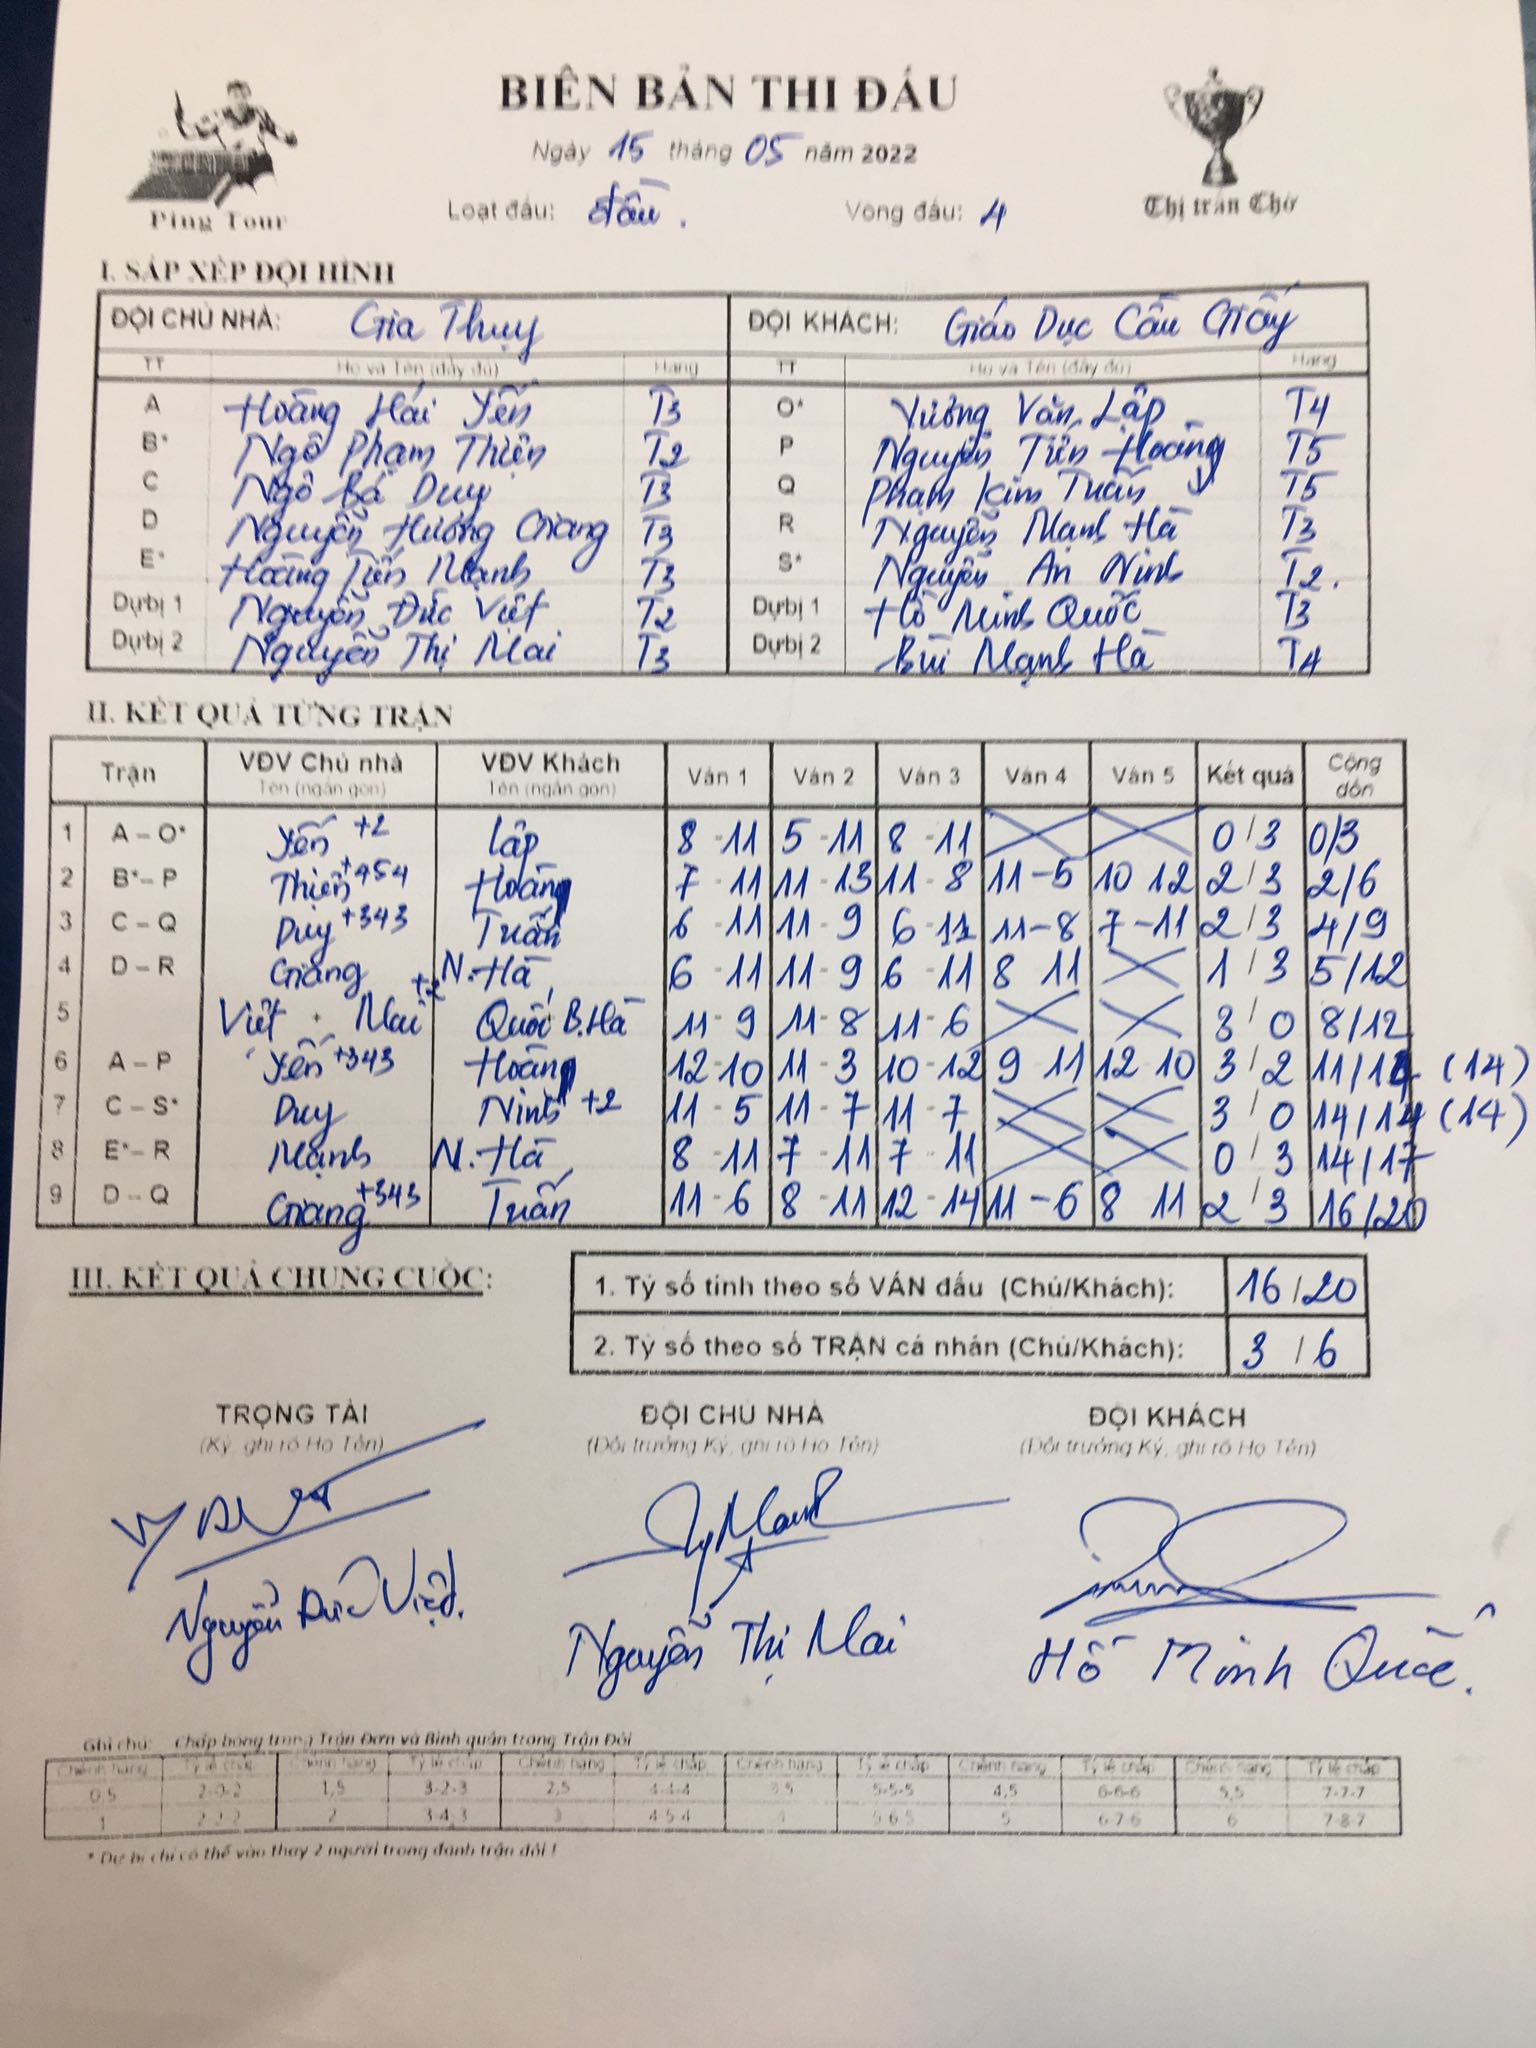 BIÊN BẢN THI ĐẤU
Ngày 15 tháng 05 năm 2022
Ping Tour
Loạt đấu: đầu. Vòng đấu: 4
Thị trấn Chờ
I. SẮP XẾP ĐỘI HÌNH
ĐỘI CHỦ NHÀ: Gia Thụy ĐỘI KHÁCH: Giáo Dục Cầu Giấy
TT Họ và Tên (đầy đủ) Hạng TT Họ và Tên (đầy đủ) Hạng
A Hoàng Hải Yến T3 O* Vương Văn Lập T4
B* Ngô Phạm Thiện T2 P Nguyễn Tiến Hoàng T5
C Ngô Bá Duy T3 Q Phạm Kim Tuấn T5
D Nguyễn Hương Giang T3 R Nguyễn Mạnh Hà T3
E* Hoàng Tiến Mạnh T3 S* Nguyễn An Ninh T2.
Dự bị 1 Nguyễn Đức Việt T2 Dự bị 1 Hồ Minh Quốc T3
Dự bị 2 Nguyễn Thị Mai T3 Dự bị 2 Bùi Mạnh Hà T4
II. KẾT QUẢ TỪNG TRẬN
Trận VĐV Chủ nhà Tên (ngắn gọn) VĐV Khách Tên (ngắn gọn) Ván 1 Ván 2 Ván 3 Ván 4 Ván 5 Kết quả Cộng dồn
1 A – O* Yến +2 Lập 8 - 11 5 - 11 8 - 11 0 / 3 0/3
2 B* – P Thiện +454 Hoàng 7 - 11 11 - 13 11 - 8 11 - 5 10 12 2 / 3 2/6
3 C – Q Duy +343 Tuấn 6 - 11 11 - 9 6 - 11 11 - 8 7 - 11 2 / 3 4/9
4 D – R Giang N. Hà 6 - 11 11 - 9 6 - 11 8 11 1 / 3 5/12
5 Việt + Mai +2 Quốc B. Hà 11 - 9 11 - 8 11 - 6 3 / 0 8/12
6 A – P Yến +343 Hoàng 12 - 10 11 - 3 10 - 12 9 - 11 12 10 3 / 2 11/14 (14)
7 C – S* Duy Ninh +2 11 - 5 11 - 7 11 - 7 3 / 0 14/14 (14)
8 E* – R Mạnh N. Hà 8 - 11 7 - 11 7 - 11 0 / 3 14/17
9 D – Q Giang +343 Tuấn 11 - 6 8 - 11 12 - 14 11 - 6 8 11 2 / 3 16/20
III. KẾT QUẢ CHUNG CUỘC:
1. Tỷ số tính theo số VÁN đấu (Chủ/Khách): 16 / 20
2. Tỷ số theo số TRẬN cá nhân (Chủ/Khách): 3 / 6
TRỌNG TÀI ĐỘI CHỦ NHÀ ĐỘI KHÁCH
(Ký, ghi rõ Họ Tên) (Đội trưởng Ký, ghi rõ Họ Tên) (Đội trưởng Ký, ghi rõ Họ Tên)
Nguyễn Đức Việt. Nguyễn Thị Mai Hồ Minh Quốc.
Ghi chú: Chấp bóng trong Trận Đơn và Bình quân trong Trận Đôi
Chênh hạng Tỷ lệ chấp Chênh hạng Tỷ lệ chấp Chênh hạng Tỷ lệ chấp Chênh hạng Tỷ lệ chấp Chênh hạng Tỷ lệ chấp Chênh hạng Tỷ lệ chấp
0,5 2-0-2 1,5 3-2-3 2,5 4-4-4 3,5 5-5-5 4,5 6-6-6 5,5 7-7-7
1 2-2-2 2 3-4-3 3 4-5-4 4 5-6-5 5 6-7-6 6 7-8-7
* Dự bị chỉ có thể vào thay 2 người trong đánh trận đôi !